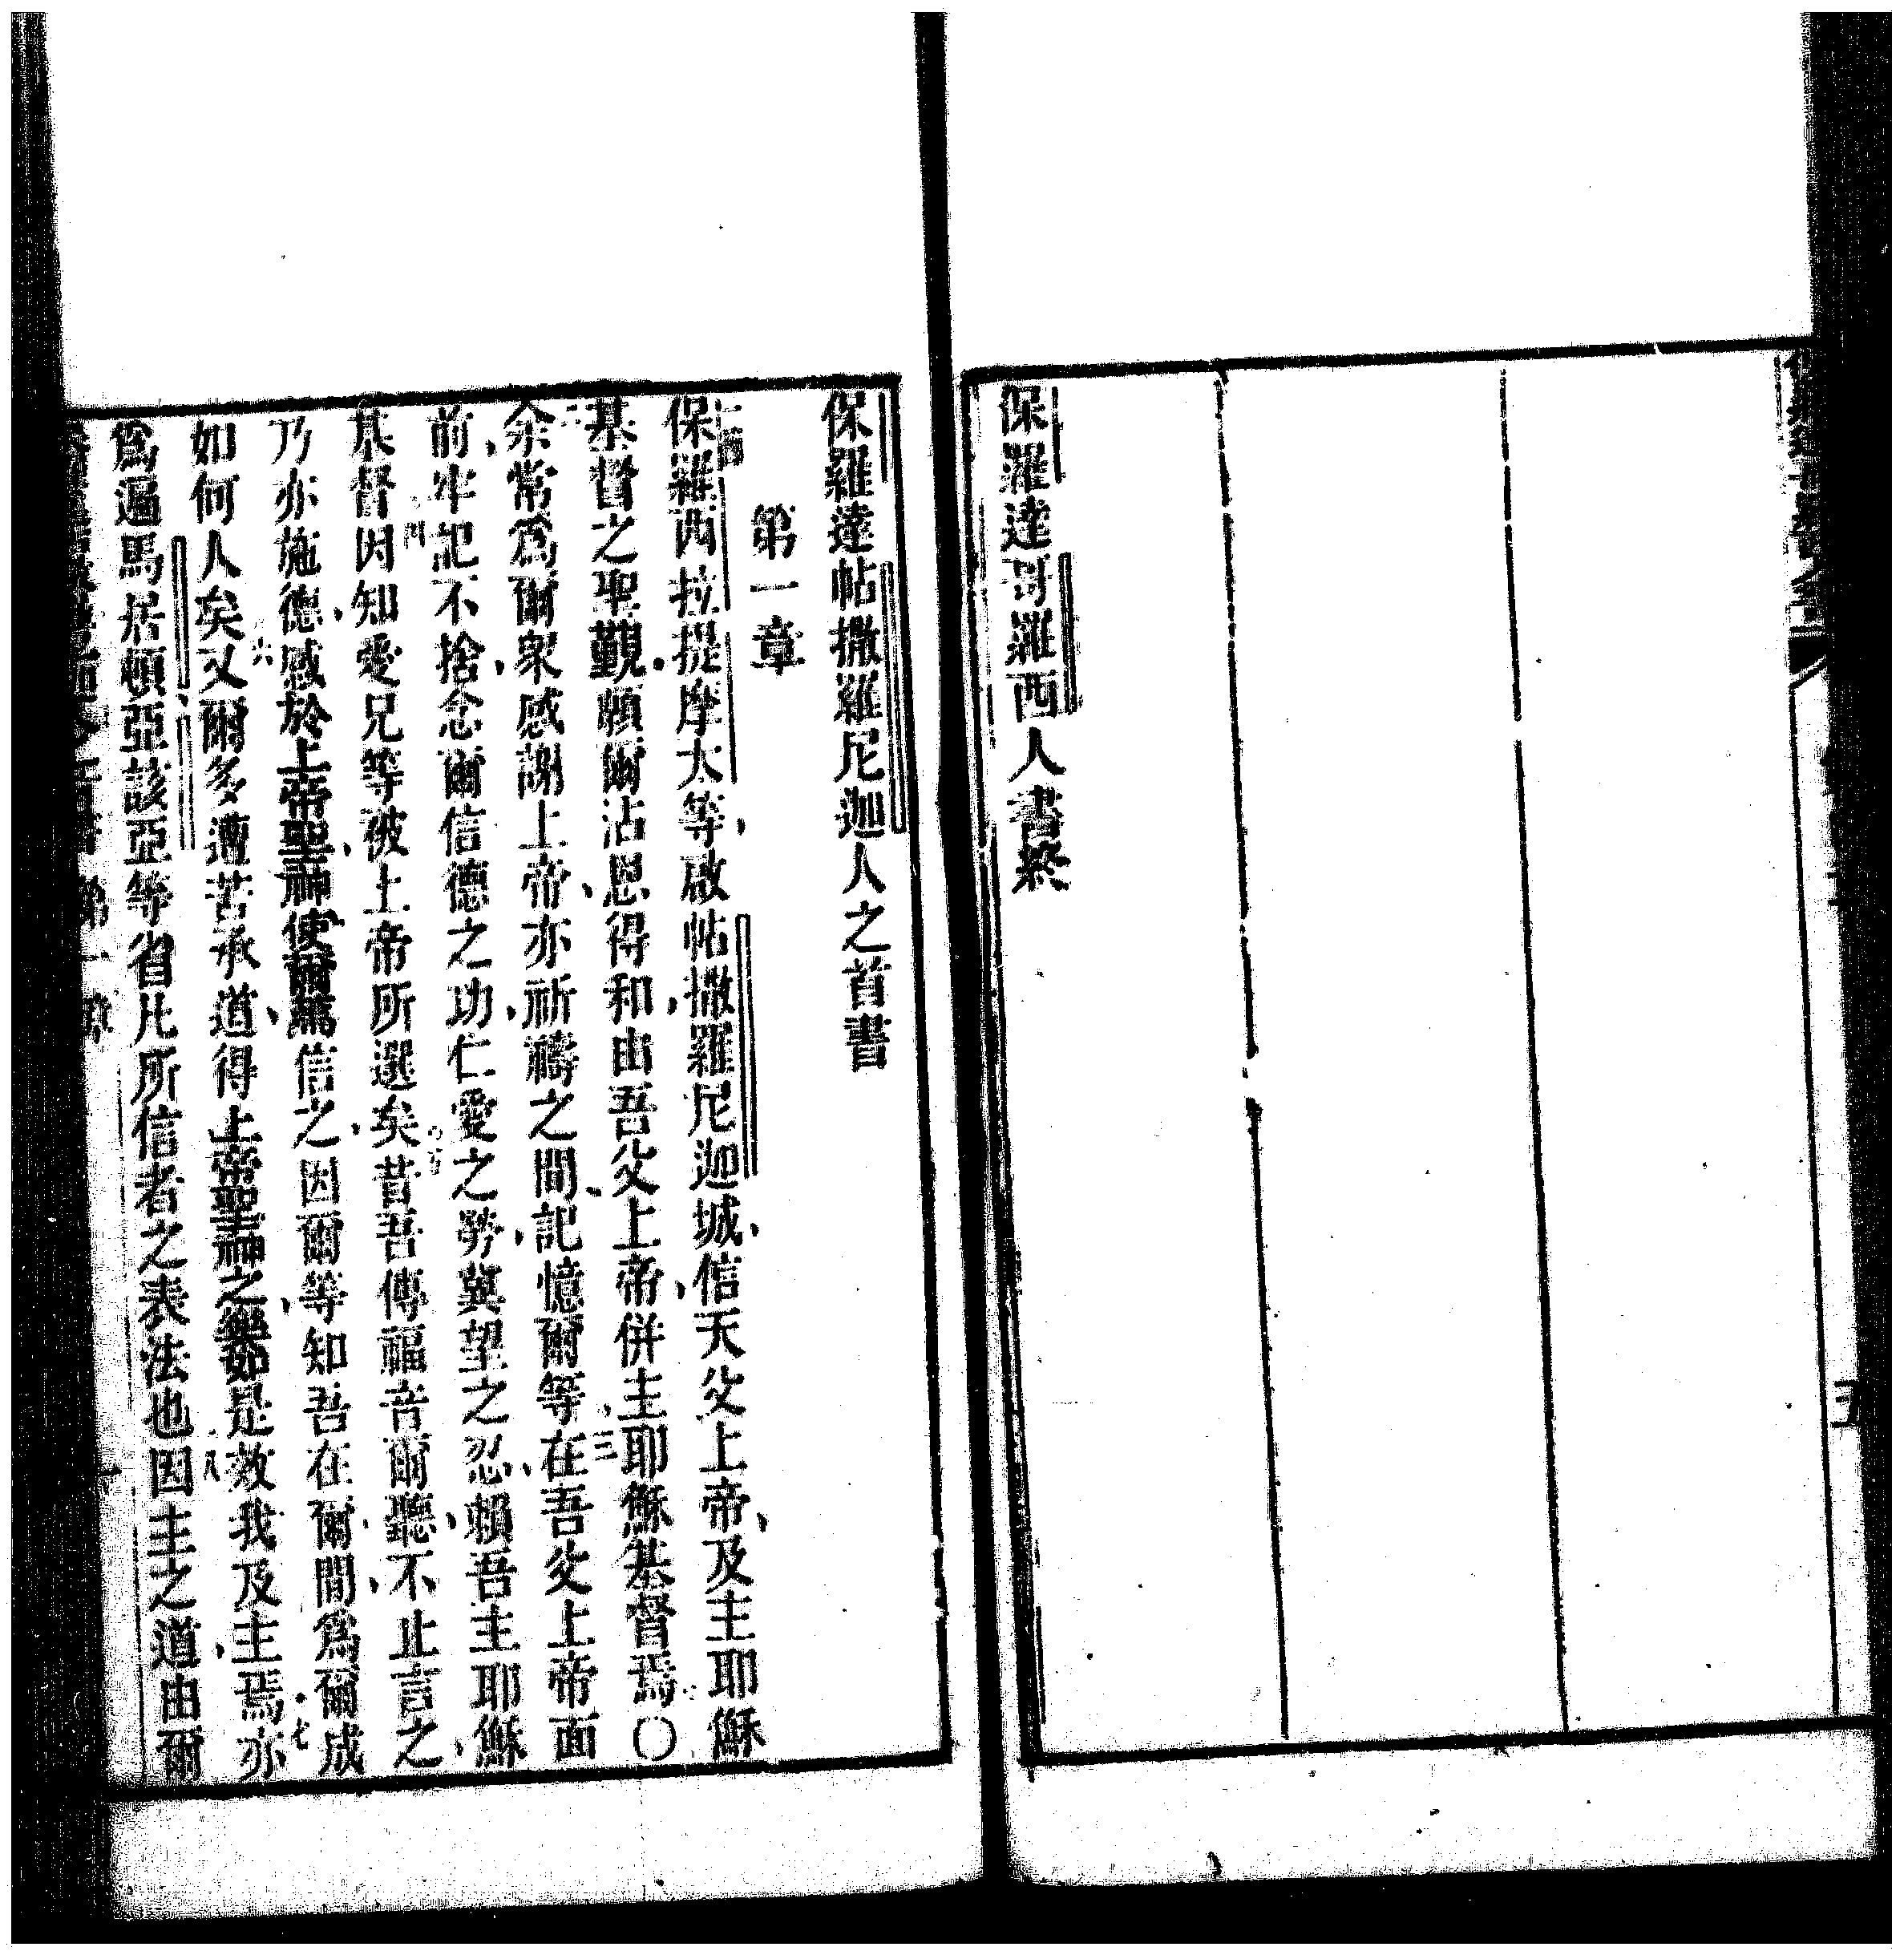 保羅達哥羅西人書終
五
保羅達帖撒羅尼迦人之首書
第一章
一節 保羅西拉提摩太等啟帖撒羅尼迦城信天父上帝及主耶穌
基督之聖覲願爾沾恩得和由吾父上帝併主耶穌基督焉〇
二 余常爲爾衆感謝上帝亦祈禱之間記憶爾等三在吾父上帝面
前牢記不捨念爾信德之功仁愛之勞冀望之忍賴吾主耶穌
基督四因知愛兄等被上帝所選矣五昔吾傳福音爾聽不止言之
乃亦施德感於上帝聖神使爾篤信之因爾等知吾在爾間爲爾成
如何人矣六又爾多遭苦承道得上帝聖神之樂如是效我及主焉七亦
爲遍馬居頓亞該亞等省凡所信者之表法也八因主之道由爾
第一章